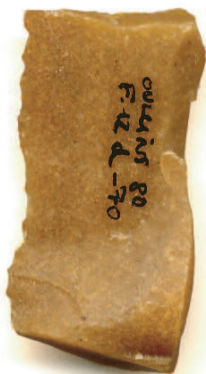 oullins 80
F.12 d
-70